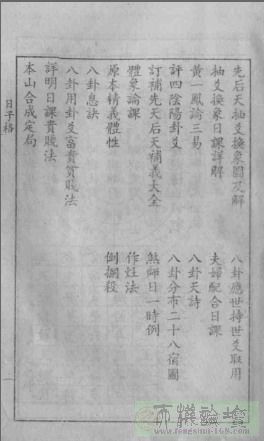 先后天抽爻換象圖及解
八卦應世持世爻取用
抽爻換象日課詳解
夫婦配合日課
黃一鳳論三易
八卦天詩
評四陰陽卦爻
八卦分布二十八宿圖
訂補先天后天補義大全
煞師日一時例
體象論課
作灶法
原本精義體性
倒攔殺
八卦息訣
八卦用卦爻富貴貧賤法
詳明日課貴賤法
本山合成定局
日子格
一
www.fengshui-168.com